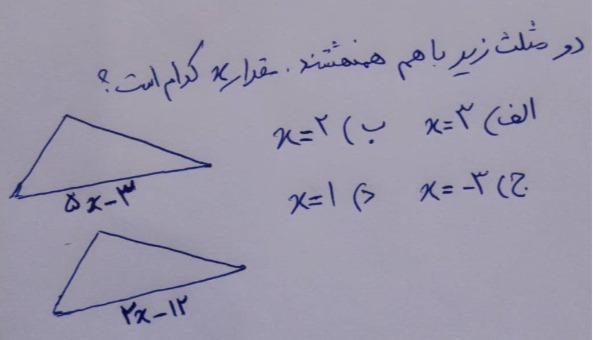 دو مثلث زیر با هم همنهشتند. مقدار x کدام است؟
الف) x=۳ ب) x=۲
ج) x=-۳ د) x=۱
۵x-۳
۲x-۱۲